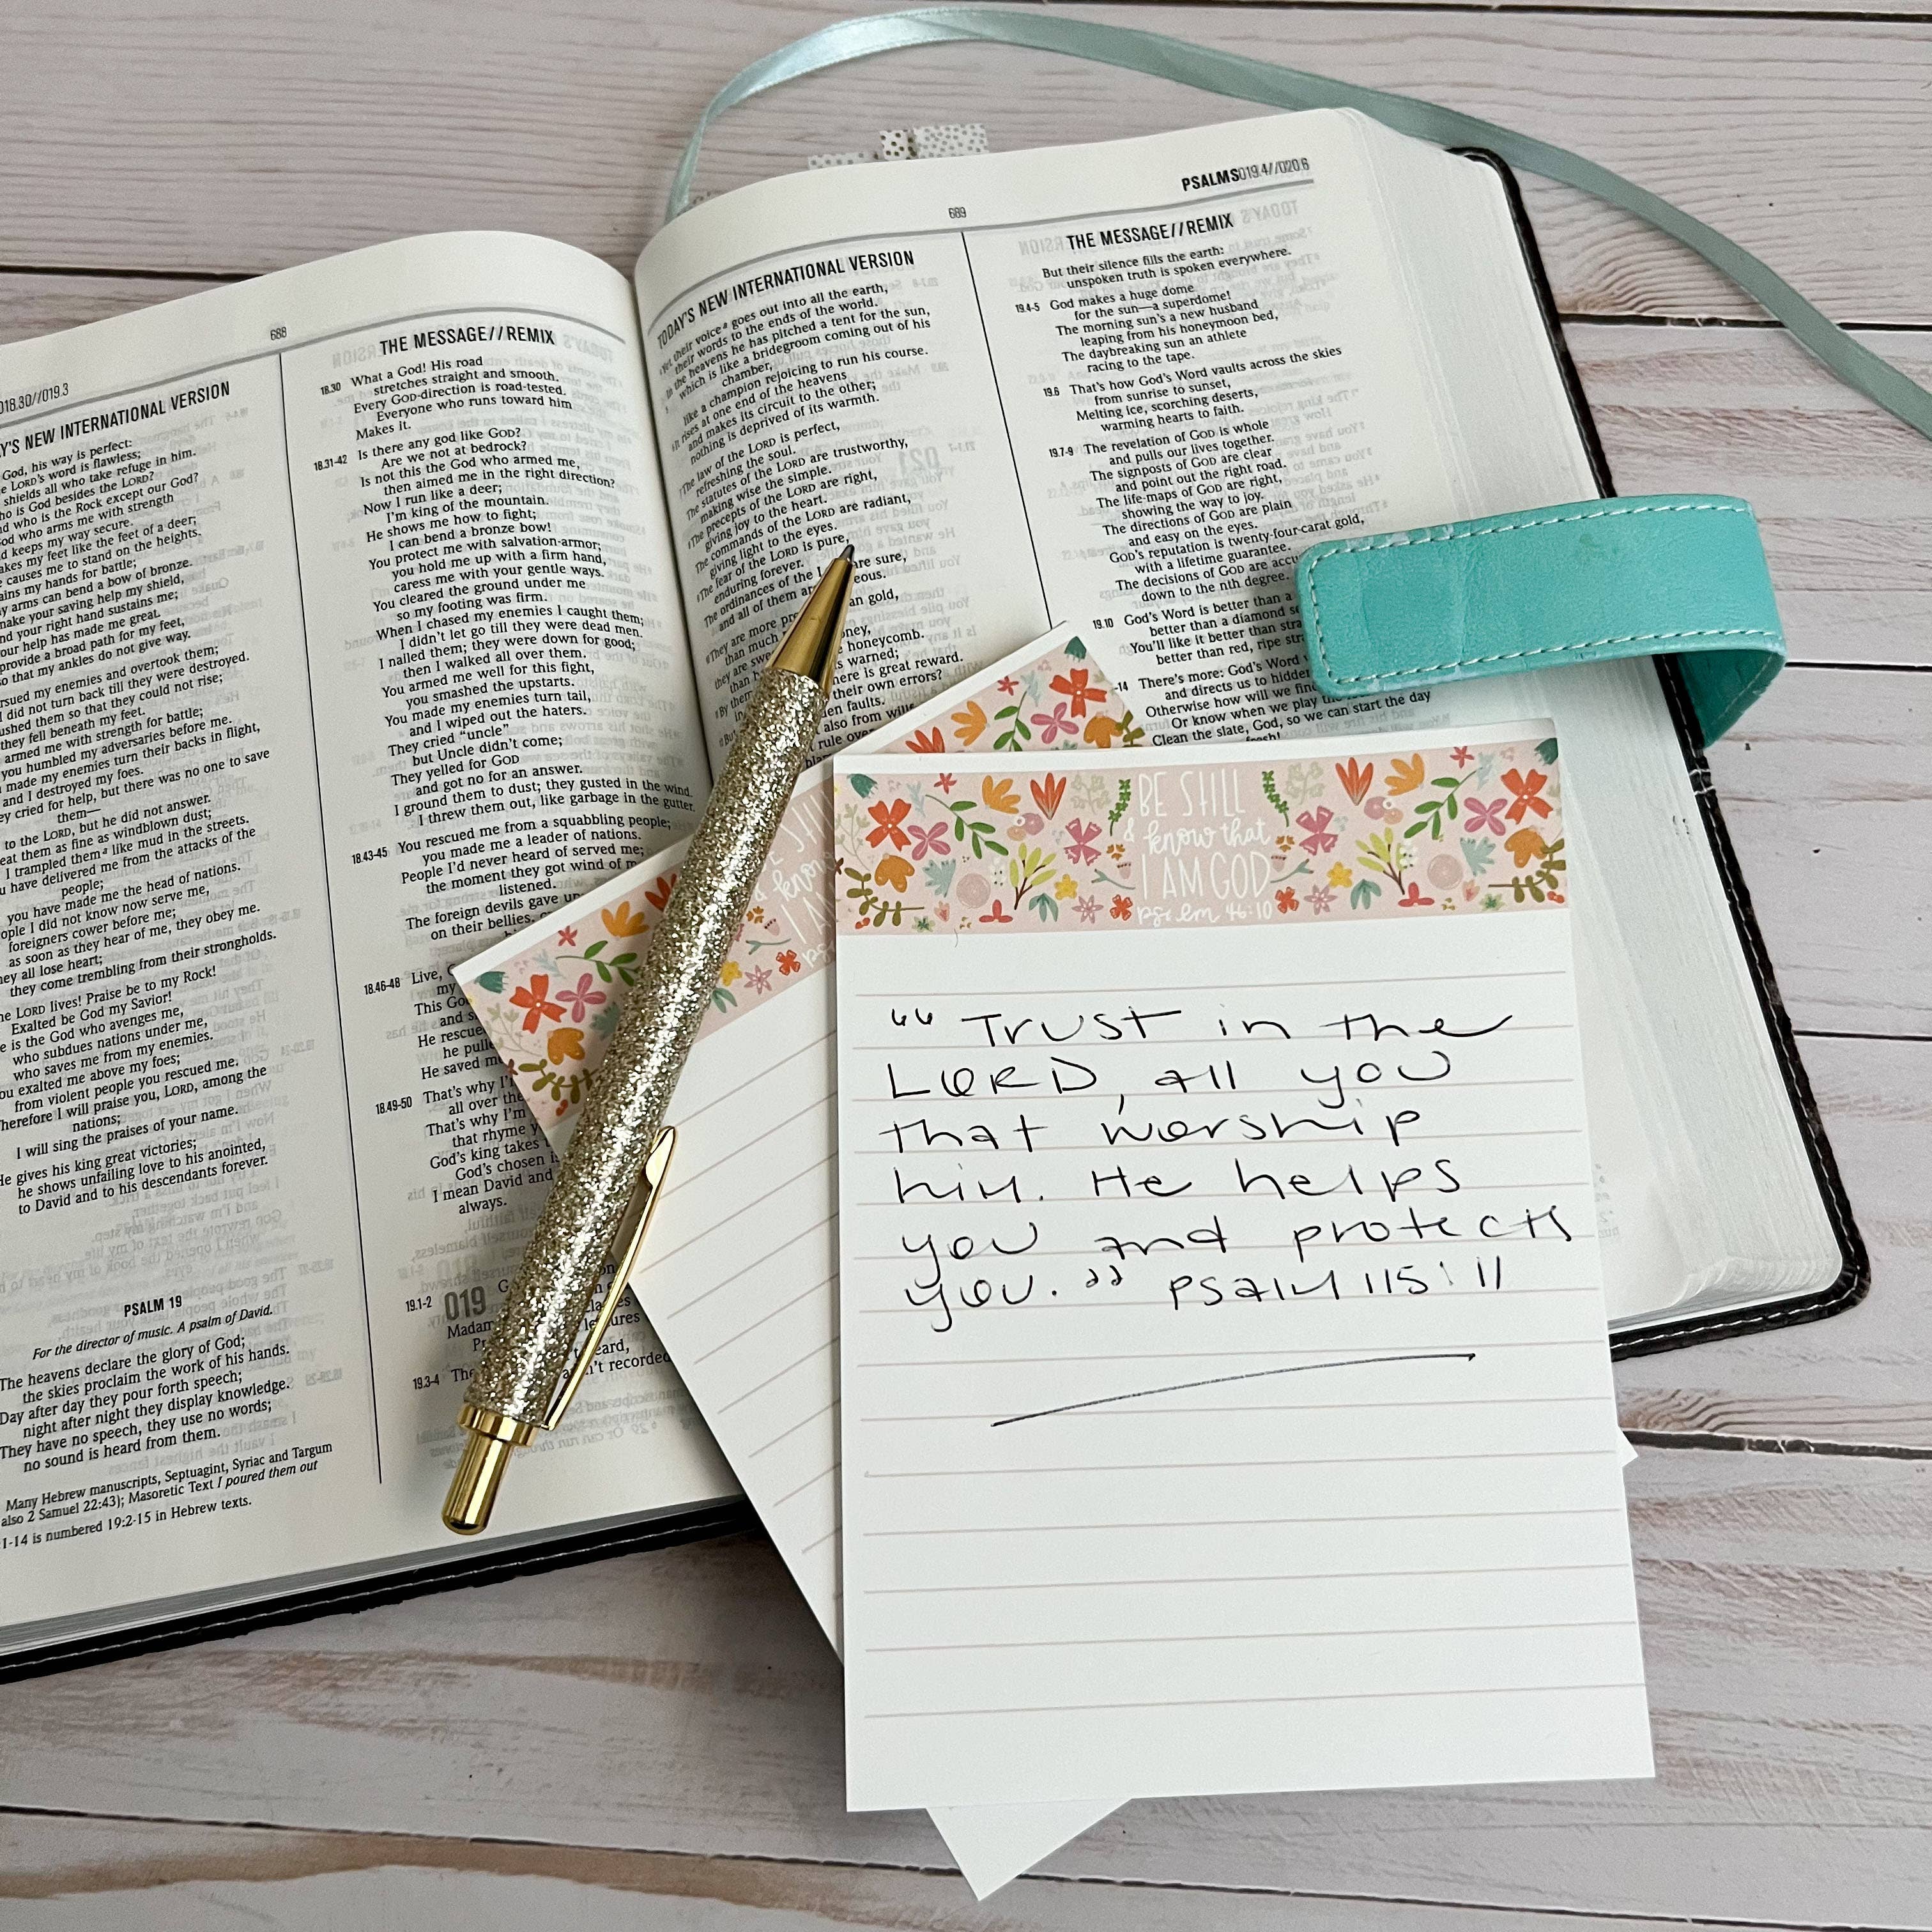 018.30//019.3
688
Y'S NEW INTERNATIONAL VERSION
God, his way is perfect:
LORD's word is flawless;
shields all who take refuge in him.
is God besides the LORD?
who is the Rock except our God?
God who arms me with strength
keeps my way secure.
makes my feet like the feet of a deer;
causes me to stand on the heights.
my hands for battle;
arms can bend a bow of bronze.
make your saving help my shield,
and your right hand sustains me;
your help has made me great.
provide a broad path for my feet,
so that my ankles do not give way.
my enemies and overtook them;
I did not turn back till they were destroyed.
them so that they could not rise;
they fell beneath my feet.
armed me with strength for battle;
you humbled my adversaries before me.
made my enemies turn their backs in flight,
and I destroyed my foes.
cried for help, but there was no one to save
them—
to the LORD, but he did not answer.
them as fine as windblown dust;
I trampled them like mud in the streets.
have delivered me from the attacks of the
people;
you have made me the head of nations.
I did not know now serve me,
foreigners cower before me;
as soon as they hear of me, they obey me.
They all lose heart;
they come trembling from their strongholds.
The LORD lives! Praise be to my Rock!
Exalted be God my Savior!
is the God who avenges me,
who subdues nations under me,
who saves me from my enemies.
You exalted me above my foes;
from violent people you rescued me.
Therefore I will praise you, LORD, among the
nations;
I will sing the praises of your name.
He gives his king great victories;
he shows unfailing love to his anointed,
to David and to his descendants forever.
PSALM 19
For the director of music. A psalm of David.
The heavens declare the glory of God;
the skies proclaim the work of his hands.
Day after day they pour forth speech;
night after night they display knowledge.
They have no speech, they use no words;
no sound is heard from them.
Many Hebrew manuscripts, Septuagint, Syriac and Targum
also 2 Samuel 22:43); Masoretic Text I poured them out
1-14 is numbered 19:2-15 in Hebrew texts.
THE MESSAGE//REMIX
18.30 What a God! His road
stretches straight and smooth.
Every GOD-direction is road-tested.
Everyone who runs toward him
Makes it.
18.31-42 Is there any god like GOD?
Are we not at bedrock?
Is not this the God who armed me,
then aimed me in the right direction?
Now I run like a deer;
I'm king of the mountain.
He shows me how to fight;
I can bend a bronze bow!
You protect me with salvation-armor;
you hold me up with a firm hand,
caress me with your gentle ways.
You cleared the ground under me
so my footing was firm.
When I chased my enemies I caught them;
I didn't let go till they were dead men.
I nailed them; they were down for good;
then I walked all over them.
You armed me well for this fight,
you smashed the upstarts.
You made my enemies turn tail,
and I wiped out the haters.
They cried "uncle"
but Uncle didn't come;
They yelled for GOD
and got no for an answer.
I ground them to dust; they gusted in the wind.
I threw them out, like garbage in the gutter.
18.43-45 You rescued me from a squabbling people;
you made me a leader of nations.
People I'd never heard of served me;
the moment they got wind of
listened.
The foreign devils gave
on their bellies,
18.46-48 Live,
my
This
and
He rescue
he
He saved
18.49-50 That's why I
all over the
That's why I'm
that rhyme
God's king takes
God's chosen
I mean David and
always.
19.1-2 019
Madam
19.3-4
recorded
689
PSALMS019.4//020.6
TODAY'S NEW INTERNATIONAL VERSION
Yet their voice goes out into all the earth,
their words to the ends of the world.
In the heavens he has pitched a tent for the sun,
which is like a bridegroom coming out of his
chamber,
like a champion rejoicing to run his course.
It rises at one end of the heavens
and makes its circuit to the other;
nothing is deprived of its warmth.
The law of the LORD is perfect,
refreshing the soul.
The statutes of the LORD are trustworthy,
making wise the simple.
The precepts of the LORD are right,
giving joy to the heart.
The commands of the LORD are radiant,
giving light to the eyes.
The fear of the LORD is pure,
enduring forever.
The ordinances of the are sure,
and all of them
They are more gold,
than much
they are
than honeycomb.
By them warned;
there is great reward.
their own errors?
faults.
also from
rule over
THE MESSAGE//REMIX
But their silence fills the earth:
unspoken truth is spoken everywhere.
19.4-5 God makes a huge dome
for the sun—a superdome!
The morning sun's a new husband
leaping from his honeymoon bed,
The daybreaking sun an athlete
racing to the tape.
19.6 That's how God's Word vaults across the skies
from sunrise to sunset,
Melting ice, scorching deserts,
warming hearts to faith.
19.7-9 The revelation of GOD is whole
and pulls our lives together.
The signposts of GOD are clear
and point out the right road.
The life-maps of GOD are right,
showing the way to joy.
The directions of GOD are plain
and easy on the eyes.
GOD's reputation is twenty-four-carat gold,
with a lifetime guarantee.
The decisions of GOD are
down to the nth degree.
19.10 God's Word is better than a
better than a diamond
You'll like it better than
better than red, ripe
-14 There's more: God's Word
and directs us to hidden
Otherwise how will we find
Or know when we play the
Clean the slate, God, so we can start the day
fresh!
BE STILL
& know that
I AM GOD
psalm 46:10
"Trust in the
LORD, all you
that worship
him. He helps
you and protects
you." Psalm 115:11